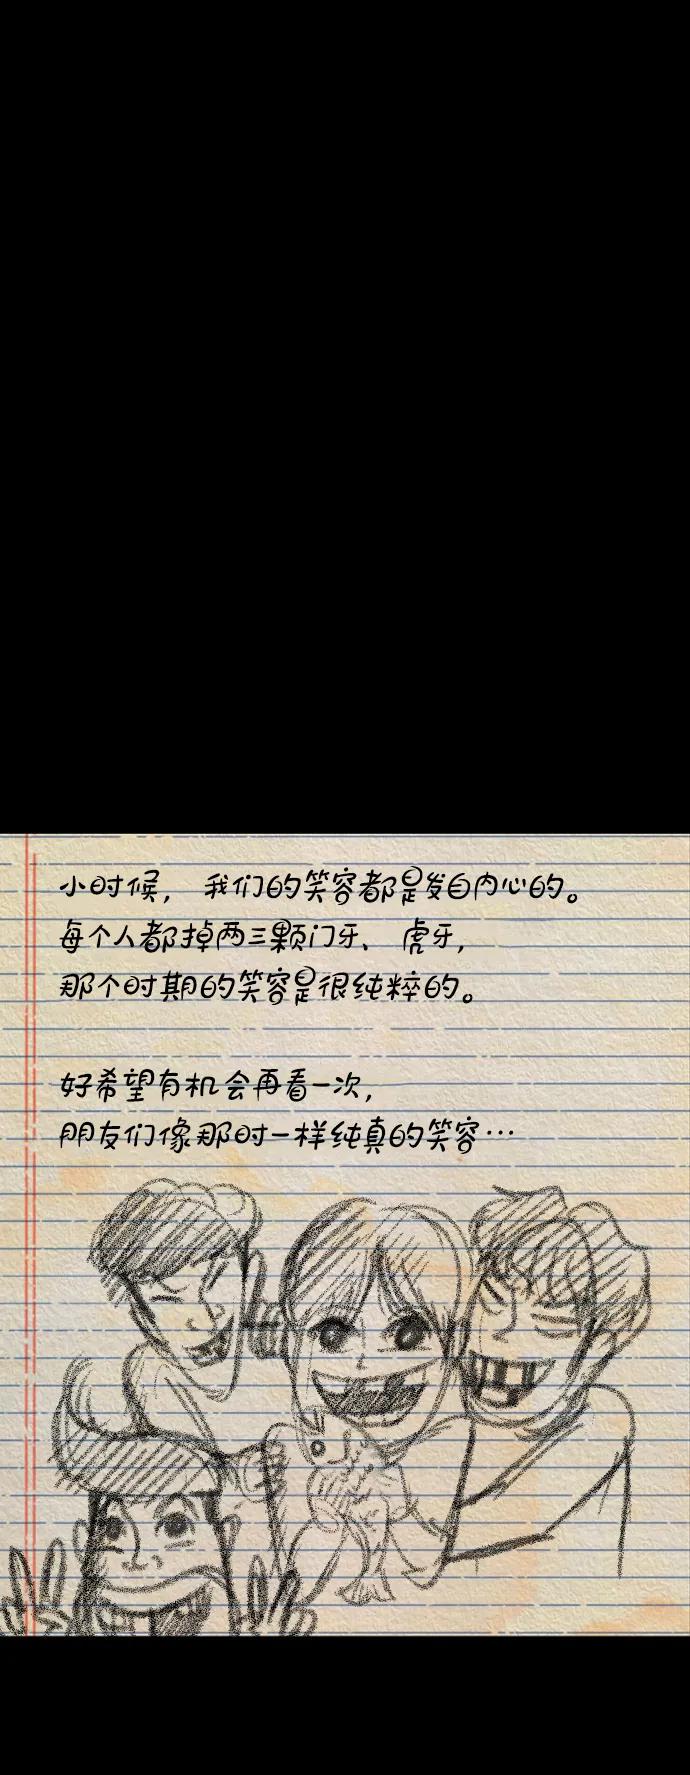 小时候， 我们的笑容都是发自内心的。
每个人都掉两三颗门牙、 虎牙，
那个时期的笑容是很纯粹的。
好希望有机会再看一次，
朋友们像那时一样纯真的笑容…